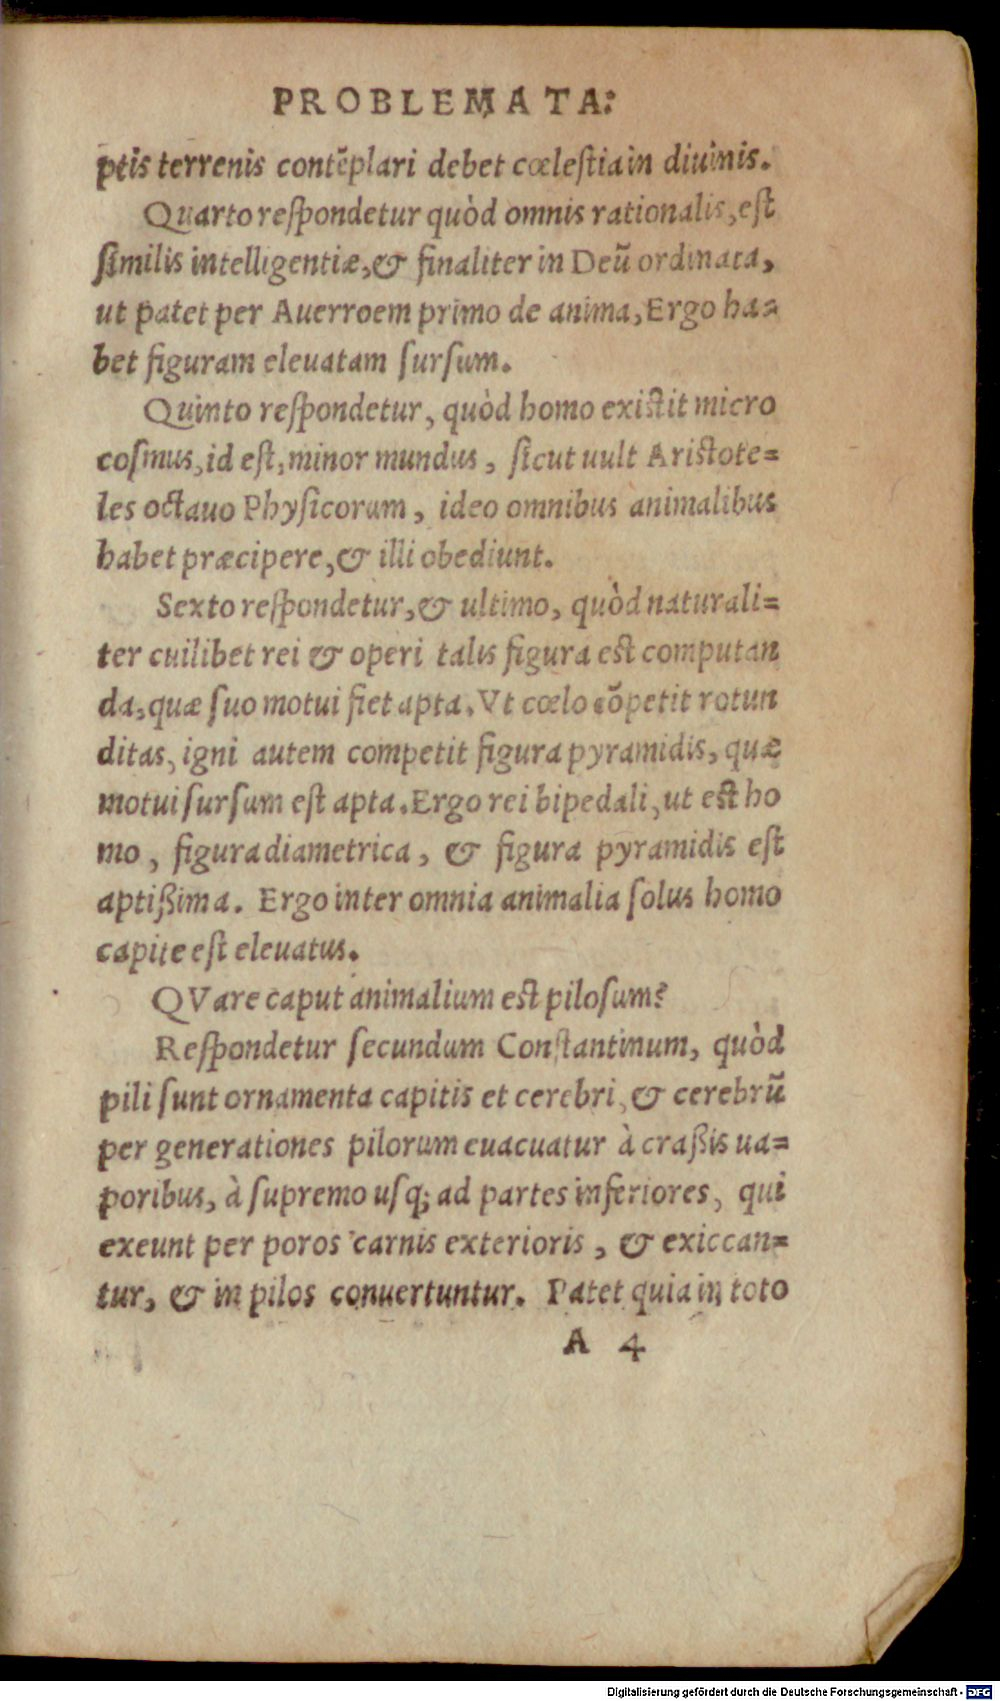 PROBLEMATA.
ptis terrenis contẽplari debet cœleſtia in diuinis.
Quarto reſpondetur quòd omnis rationalis, eſt
ſimilis intelligentiæ, & finaliter in Deũ ordinata,
ut patet per Auerroem primo de anima, Ergo ha=
bet figuram eleuatam ſurſum.
Quinto reſpondetur, quòd homo exiſtit micro
coſmus, id eſt, minor mundus, ſicut uult Ariſtote=
les octauo Phyſicorum, ideo omnibus animalibus
habet præcipere, & illi obediunt.
Sexto reſpondetur, & ultimo, quòd naturali=
ter cuilibet rei & operi talis figura eſt computan
da, quæ ſuo motui fiet apta. Vt cœlo cõpetit rotun
ditas, igni autem competit figura pyramidis, quæ
motui ſurſum eſt apta. Ergo rei bipedali, ut eſt ho
mo, figura diametrica, & figura pyramidis eſt
aptißima. Ergo inter omnia animalia ſolus homo
capite eſt eleuatus.
QVare caput animalium eſt piloſum?
Reſpondetur ſecundum Conſtantinum, quòd
pili ſunt ornamenta capitis et cerebri, & cerebrũ
per generationes pilorum euacuatur à craßis ua=
poribus, à ſupremo uſq; ad partes inferiores, qui
exeunt per poros carnis exterioris, & exiccan=
tur, & in pilos conuertuntur. Patet quia in toto
A 4
Digitalisierung gefördert durch die Deutsche Forschungsgemeinschaft - DFG